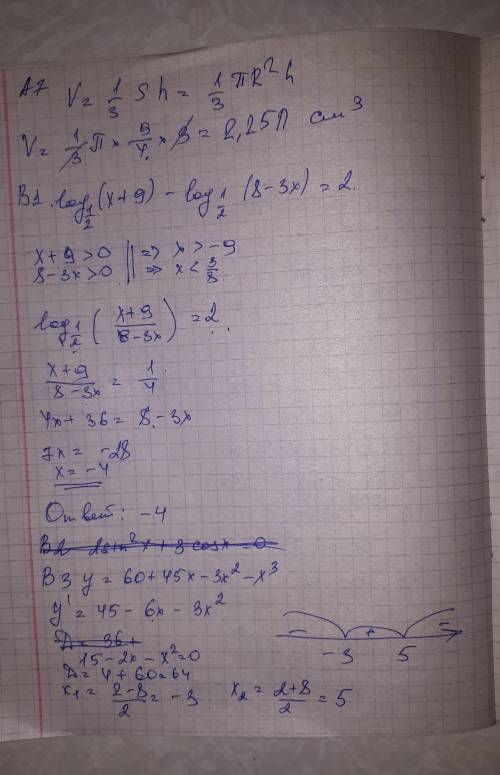 A7 V = 1/3 Sh = 1/3 πR²h
V = 1/3 π × 9/4 × 3 = 2,25π см³
B1. log_{1/2}(x+9) - log_{1/2}(8-3x) = 2.
x+9>0 || => x > -9
8-3x>0 || => x < 3/8
log_{1/2}((x+9)/(8-3x)) = 2
(x+9)/(8-3x) = 1/4
4x + 36 = 8 - 3x
7x = -28
x = -4
Ответ: -4
B2 2sin²x + 3cosx = 0
B3 y = 60 + 45x - 3x² - x³
y' = 45 - 6x - 3x²
D = 36 +
15 - 2x - x² = 0
D = 4 + 60 = 64
x₁ = (2-8)/2 = -3 x₂ = (2+8)/2 = 5
- + -
-3 5